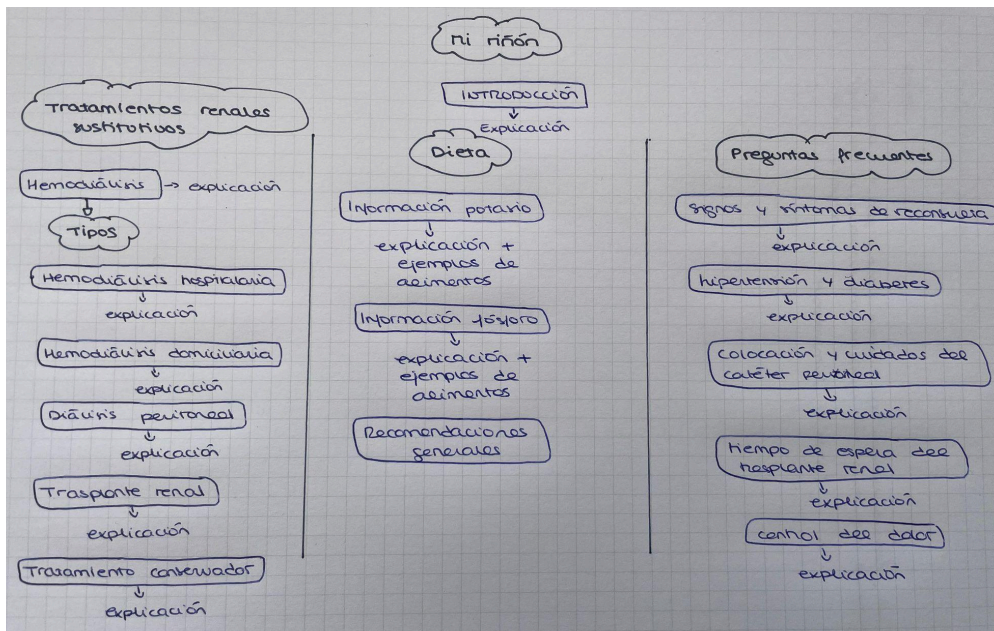 Mi riñón
INTRODUCCIÓN
Explicación
Tratamientos renales
sustitutivos
Hemodiálisis → explicación
Tipos
Hemodiálisis hospitalaria
explicación
Hemodiálisis domiciliaria
explicación
Diálisis peritoneal
explicación
Trasplante renal
explicación
Tratamiento conservador
explicación
Dieta
Información potasio
explicación +
ejemplos de
alimentos
Información fósforo
explicación +
ejemplos de
alimentos
Recomendaciones
generales
Preguntas frecuentes
signos y síntomas de reconsulta
explicación
hipertensión y diabetes
explicación
colocación y cuidados del
catéter peritoneal
explicación
tiempo de espera del
trasplante renal
explicación
control del dolor
explicación